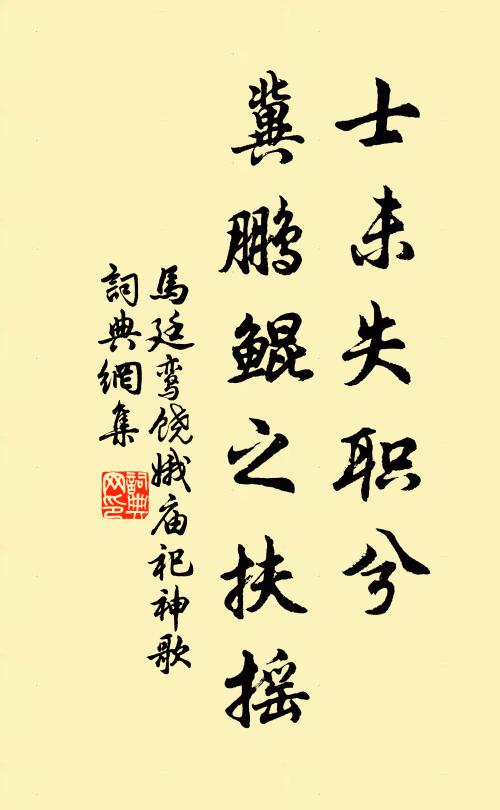 士未失职兮
冀鹏鲲之扶摇
馬廷鸾饶娥庙祀神歌
詞典網集
詞典网印